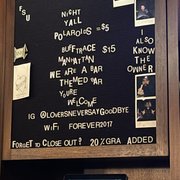 FSU
NIGHT
YALL
POLAROIDS = $5
BUFFTRACE $15
WE ARE A BAR
THEMED BAR
YOU'RE
WELCOME
ALSO
KNOW
THE
OWNER
IG @LOVERSNEVERSAYGOODBYE
WIFI FOREVER2017
FORGET TO CLOSE OUT? 20% GRA ADDED